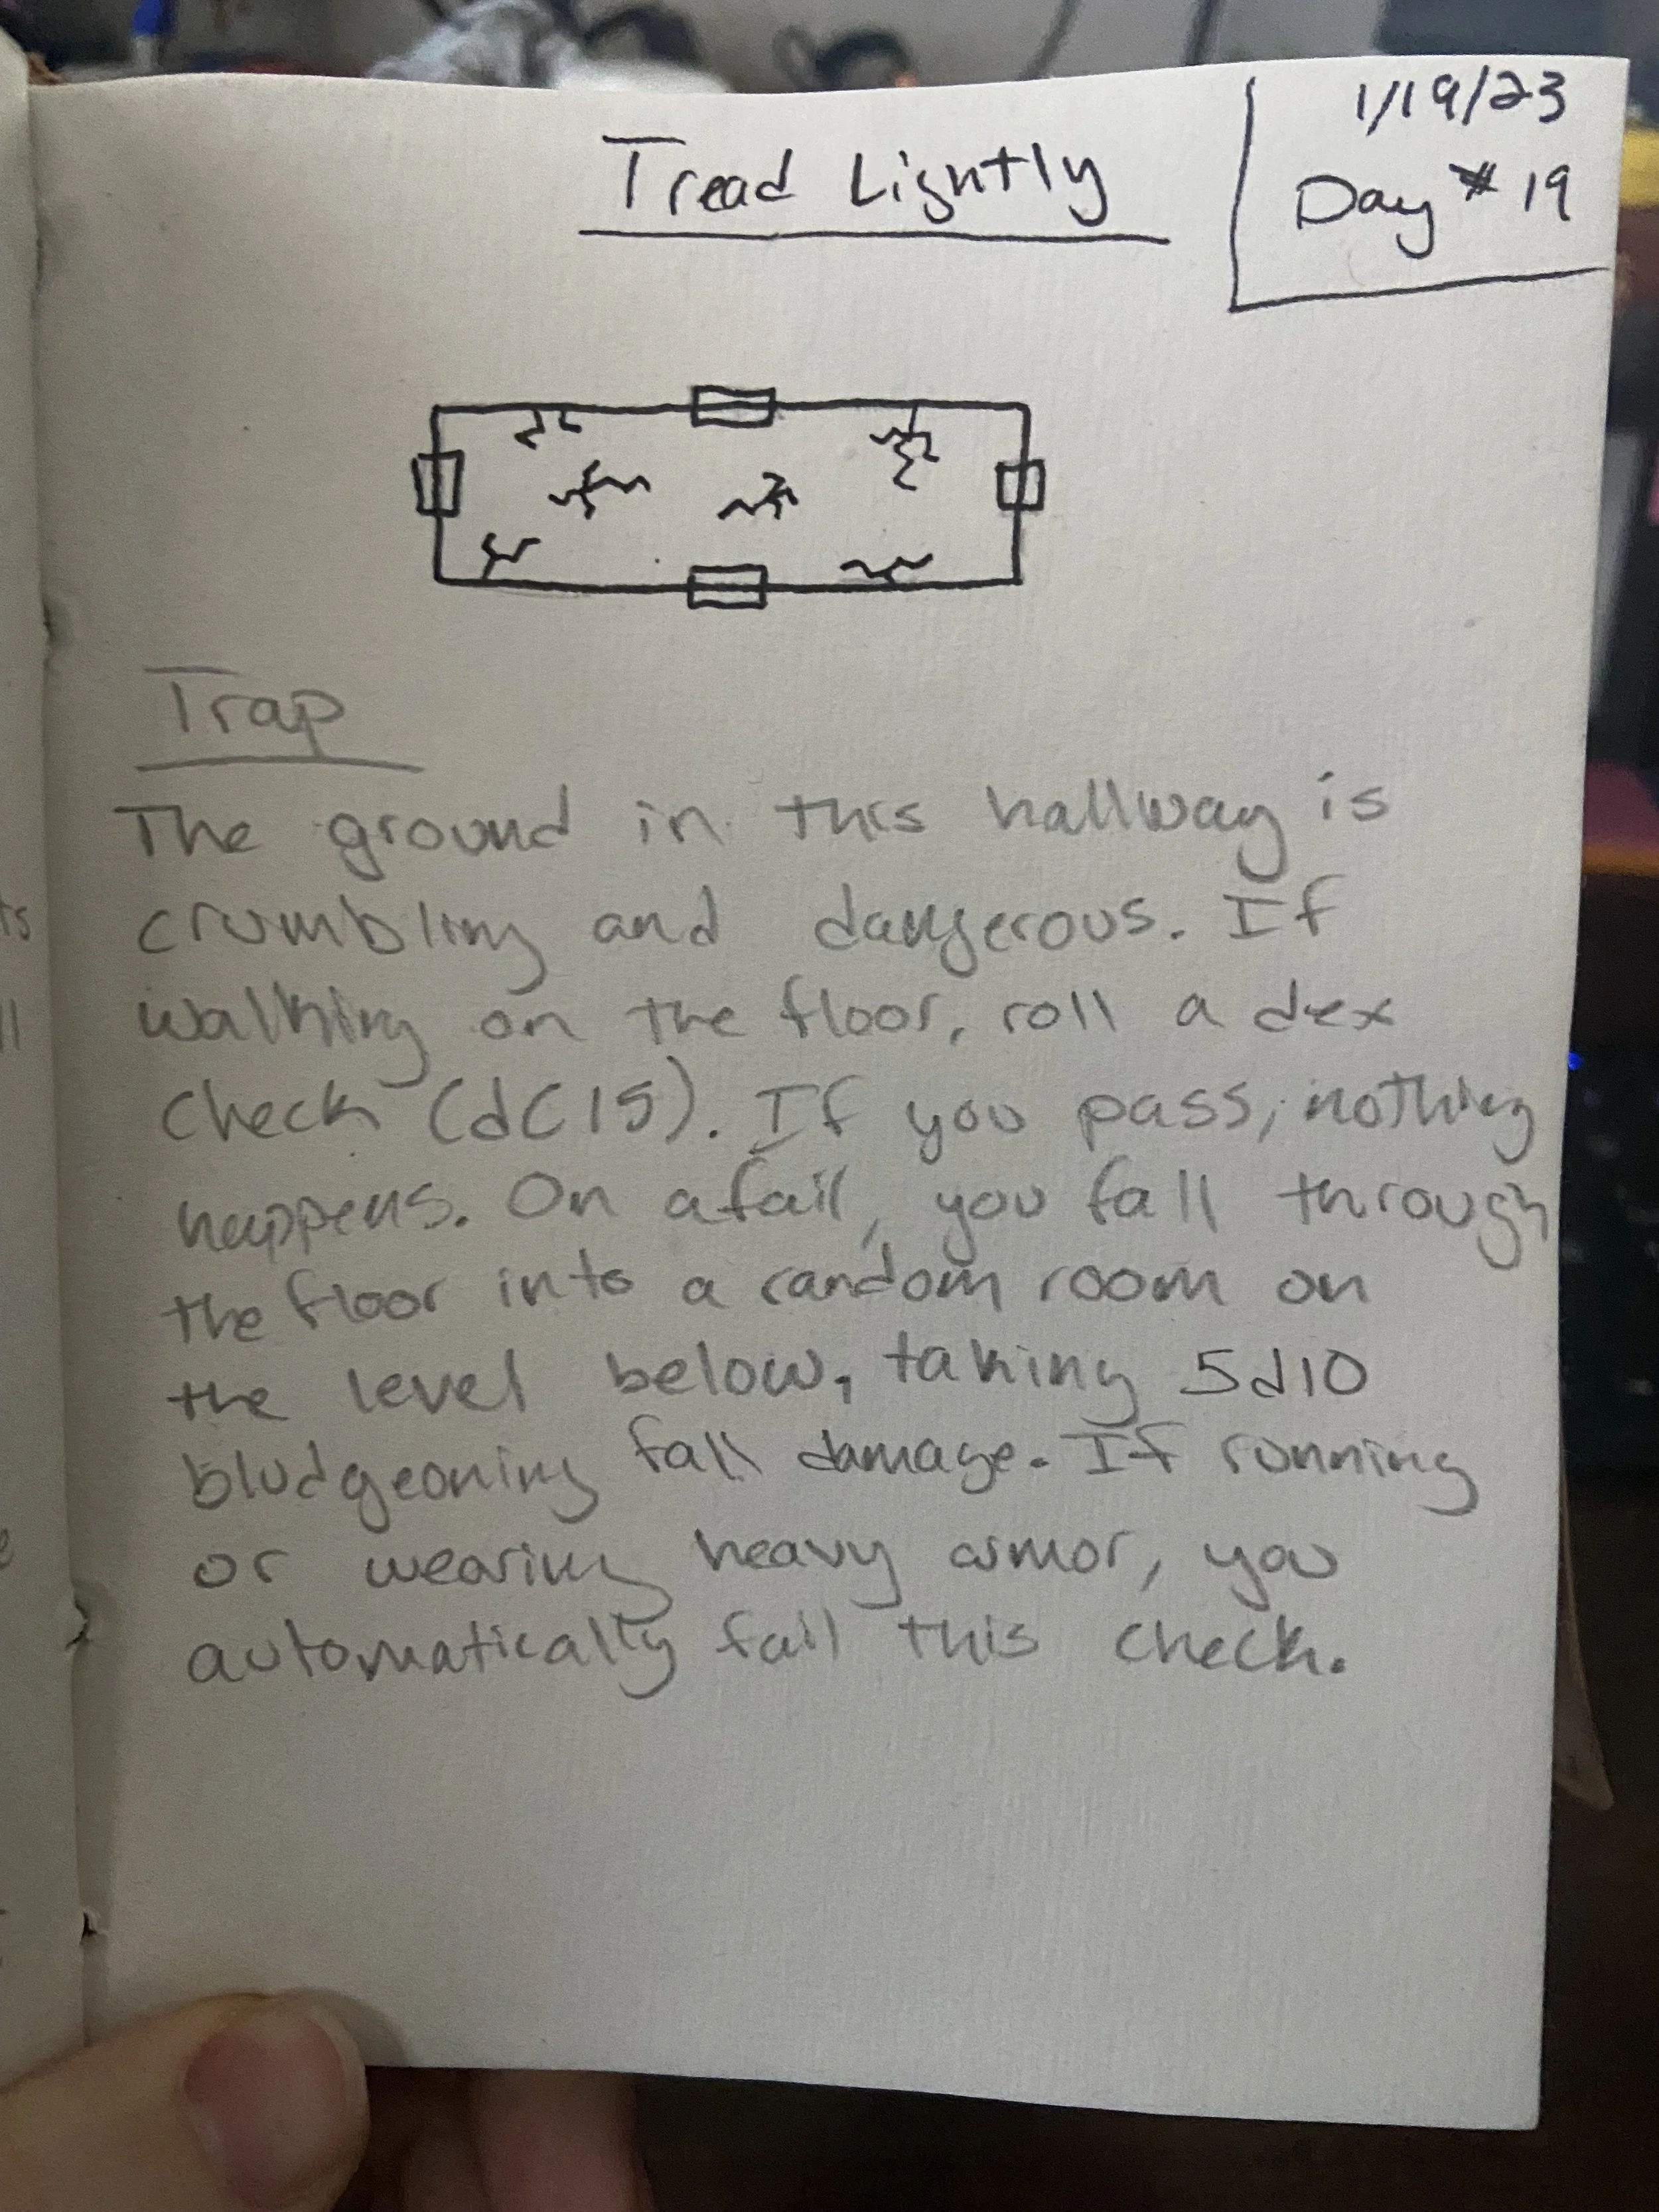 1/19/23
Tread Lightly
Day # 19
Trap
The ground in this hallway is
crumbling and dangerous. If
walking on the floor, roll a dex
check (dC15). If you pass, nothing
happens. On a fail, you fall through
the floor into a random room on
the level below, taking 5d10
bludgeoning fall damage. If running
or wearing heavy armor, you
automatically fail this check.